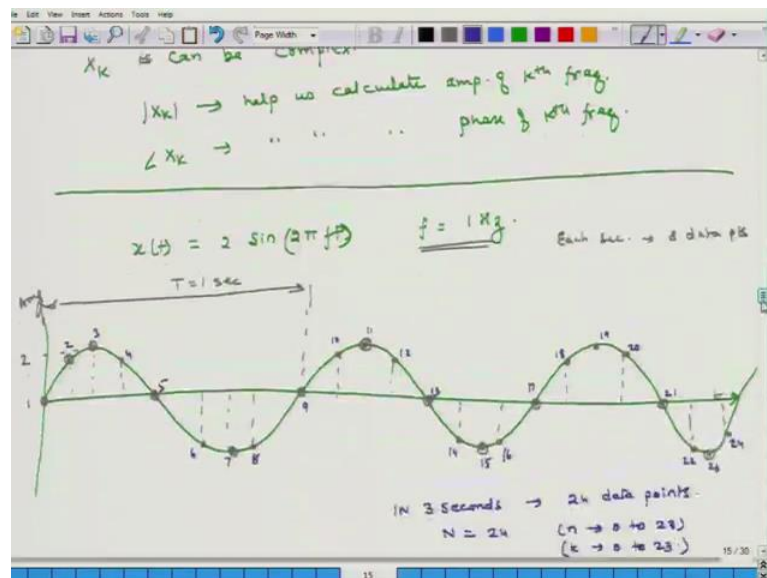 File Edit View Insert Actions Tools Help
Page Width
B I
X_K is can be complex.
|X_K| → help us calculate amp. of Kth freq.
∠ X_K → " " " phase of Kth freq.
x(t) = 2 sin (2π ft) f = 1 Hz.
Each sec. → 8 data pts
T = 1 sec
2
1 2 3 4 5 6 7 8 9 10 11 12 13 14 15 16 17 18 19 20 21 22 23 24
t
IN 3 seconds → 24 data points.
N = 24 (n → 0 to 23)
(k → 0 to 23)
15 / 30
15